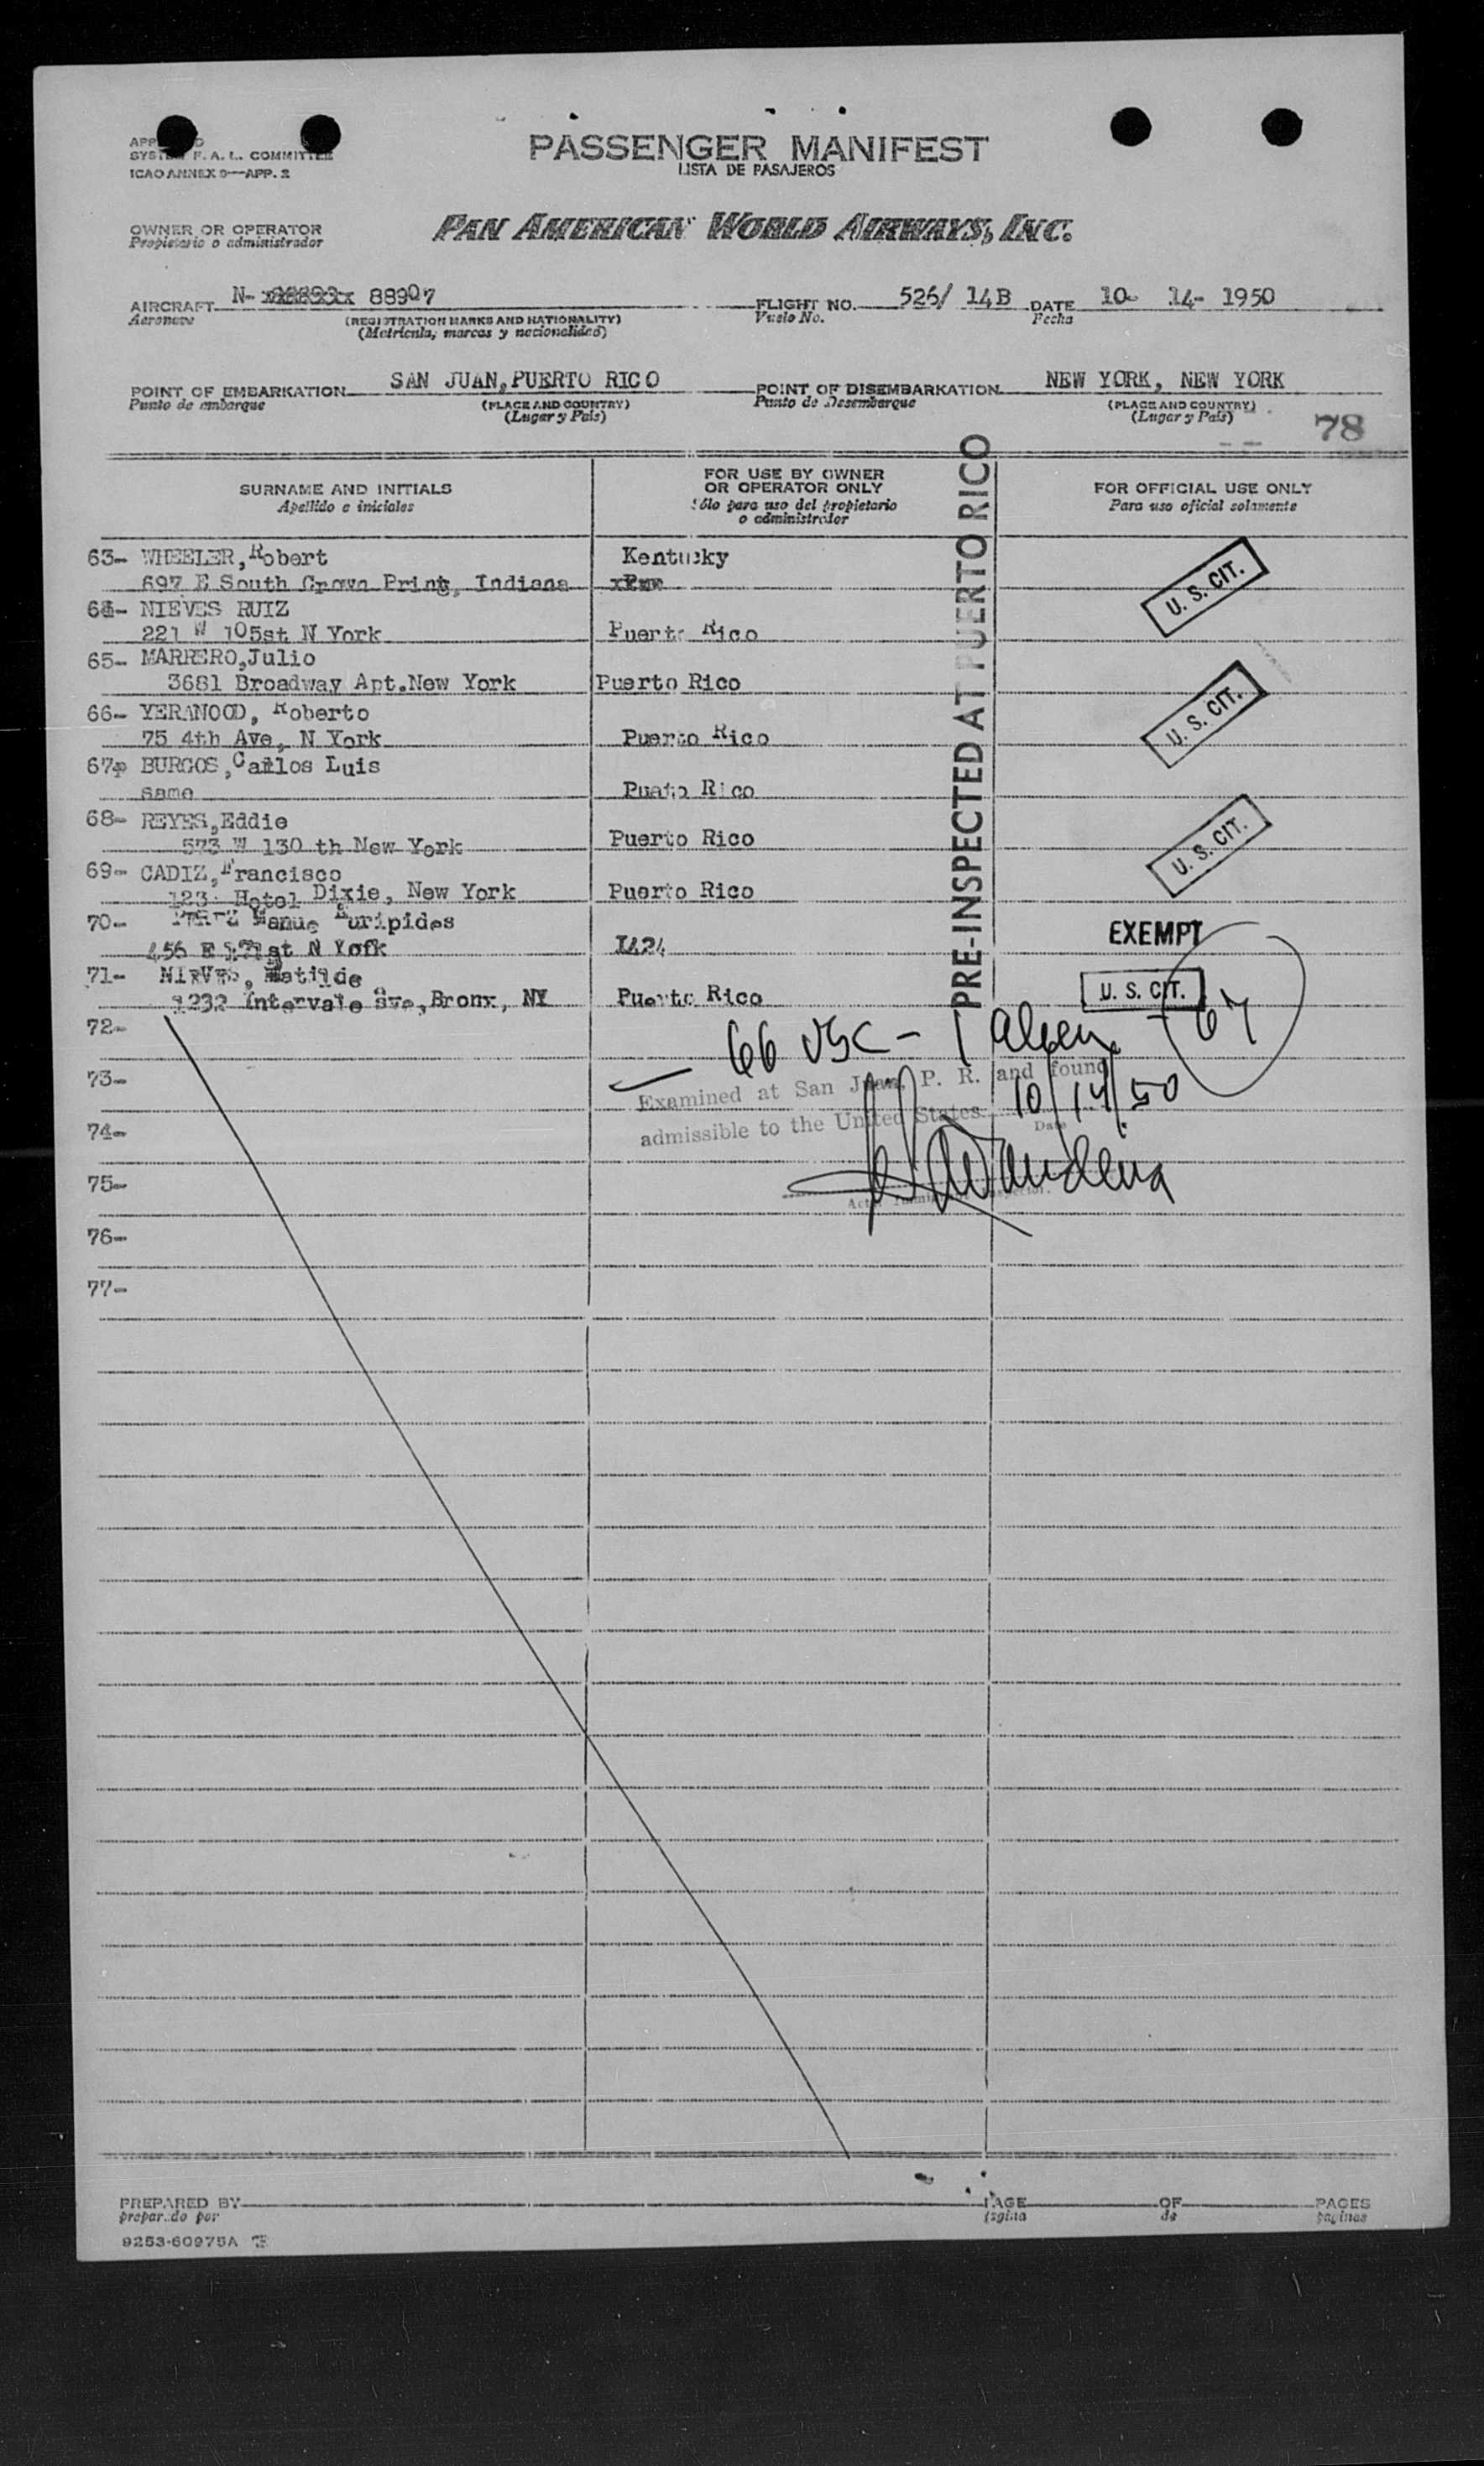 PASSENGER MANIFEST
LISTA DE PASAJEROS
SYSTEM F. A. L. COMMITTEE
ICAO ANNEX 9—APP. 2
OWNER OR OPERATOR
Propietario o administrador
PAN AMERICAN WORLD AIRWAYS, INC.
AIRCRAFT N- 88907 FLIGHT NO. 526/ 14B DATE 10- 14- 1950
Aeronave (REGISTRATION MARKS AND NATIONALITY) Vuelo No. Fecha
(Matricula, marcas y nacionalidad)
POINT OF EMBARKATION SAN JUAN, PUERTO RICO POINT OF DISEMBARKATION NEW YORK, NEW YORK
Punto de embarque (PLACE AND COUNTRY) Punto de Desembarque (PLACE AND COUNTRY)
(Lugar y Pais) (Lugar y Pais)
78
SURNAME AND INITIALS FOR USE BY OWNER OR OPERATOR ONLY FOR OFFICIAL USE ONLY
Apellido e iniciales Sólo para uso del propietario o administrador Para uso oficial solamente
PRE-INSPECTED AT PUERTO RICO
63- WHEELER, Robert Kentucky
697 E South Crown Indiana U. S. CIT.
64- NIEVES RUIZ
221 W 105st N York Puerto Rico
65- MARRERO, Julio
3681 Broadway Apt. New York Puerto Rico
66- YERANOOD, Roberto U. S. CIT.
75 4th Ave, N York Puerto Rico
67- BURGOS, Carlos Luis
same Rico
68- REYES, Eddie
573 W 130 th New York Puerto Rico U. S. CIT.
69- CADIZ, Francisco
123 Hotel Dixie, New York Puerto Rico
70- Euripides EXEMPT
456 E N York I424
71- NIEVES, Matilde
1232 Intervale Ave, Bronx, NY Puerto Rico U. S. CIT.
72-
66 USC - 1 alien - 67
73-
Examined at San Juan, P. R. and found
10/14/50
admissible to the United States
Date
74-
75-
76-
77-
PREPARED BY PAGE OF PAGES
preparado por pagina de paginas
9253-60975A